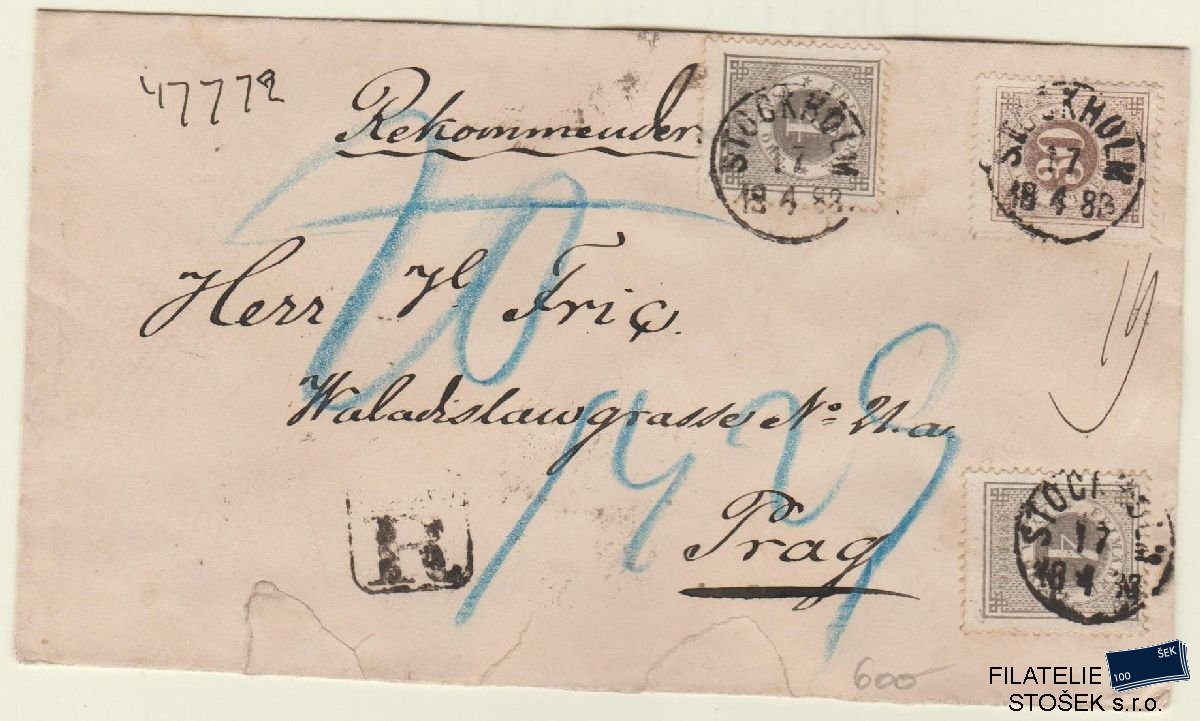 47772
Rekommender
STOCKHOLM
17
18 4 83
STOCKHOLM
17
18 4 83
30
Herr Fric
19
Waladislawgrasse No 21.a.
Prag
R
STOCKHOLM
17
18 4 83
600
ŠEK
100
FILATELIE
STOŠEK s.r.o.